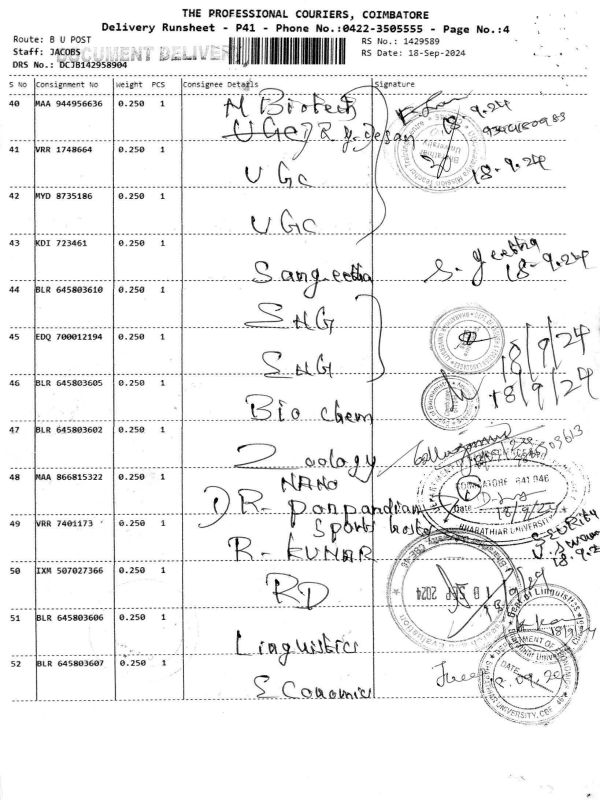 THE PROFESSIONAL COURIERS, COIMBATORE
Delivery Runsheet - P41 - Phone No.:0422-3505555 - Page No.:4
Route: B U POST
Staff: JACOBS
DOCUMENT DELIVERY
DRS No.: DCJB142958904
RS No.: 1429589
RS Date: 18-Sep-2024
S No Consignment No Weight PCS Consignee Details Signature
40 MAA 944956636 0.250 1 M Biotech
UGC DR
18.9.24
41 VRR 1748664 0.250 1 UGC
18.9.24
42 MYD 8735186 0.250 1 UGC
43 KDI 723461 0.250 1 Sangeetha S. Geetha
18-9.24
44 BLR 645803610 0.250 1 SNG
18/9/24
45 EDQ 700012194 0.250 1 SNG
18/9/24
46 BLR 645803605 0.250 1 Bio chem
47 BLR 645803602 0.250 1 Zoology
48 MAA 866815322 0.250 1 NANO
DR- Ponpandian
COIMBATORE 641 046
Date
BHARATHIAR UNIVERSITY
49 VRR 7401173 0.250 1 Sports
R- KUMAR
18.9.2
50 IXM 507027366 0.250 1 RD
18 SEP 2024
51 BLR 645803606 0.250 1 Linguistics
Dept of Linguistics
18/9/24
52 BLR 645803607 0.250 1 Economics
DATE
18.09.24